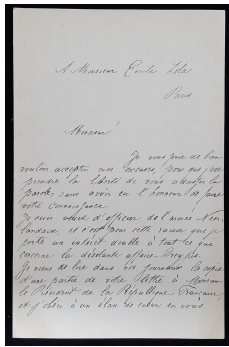 A Monsieur Emile Zola
Paris
Monsieur!
Je vous prie de bien
vouloir accepter mes excuses, pour que j'ose
prendre la liberté de vous adresser la
parole, sans avoir eu l'honneur de faire
votre connaissance.
Je suis veuve d'officier de l'armée Néer-
landaise, et c'est pour cette raison que je
porte un intérêt double à tout ce que
concerne la désolante affaire Dreyfus.
Je viens de lire dans nos journaux la copie
d'une partie de votre lettre à Monsieur
le Président de la République Française,
et j'obéis à un élan de cœur en vous